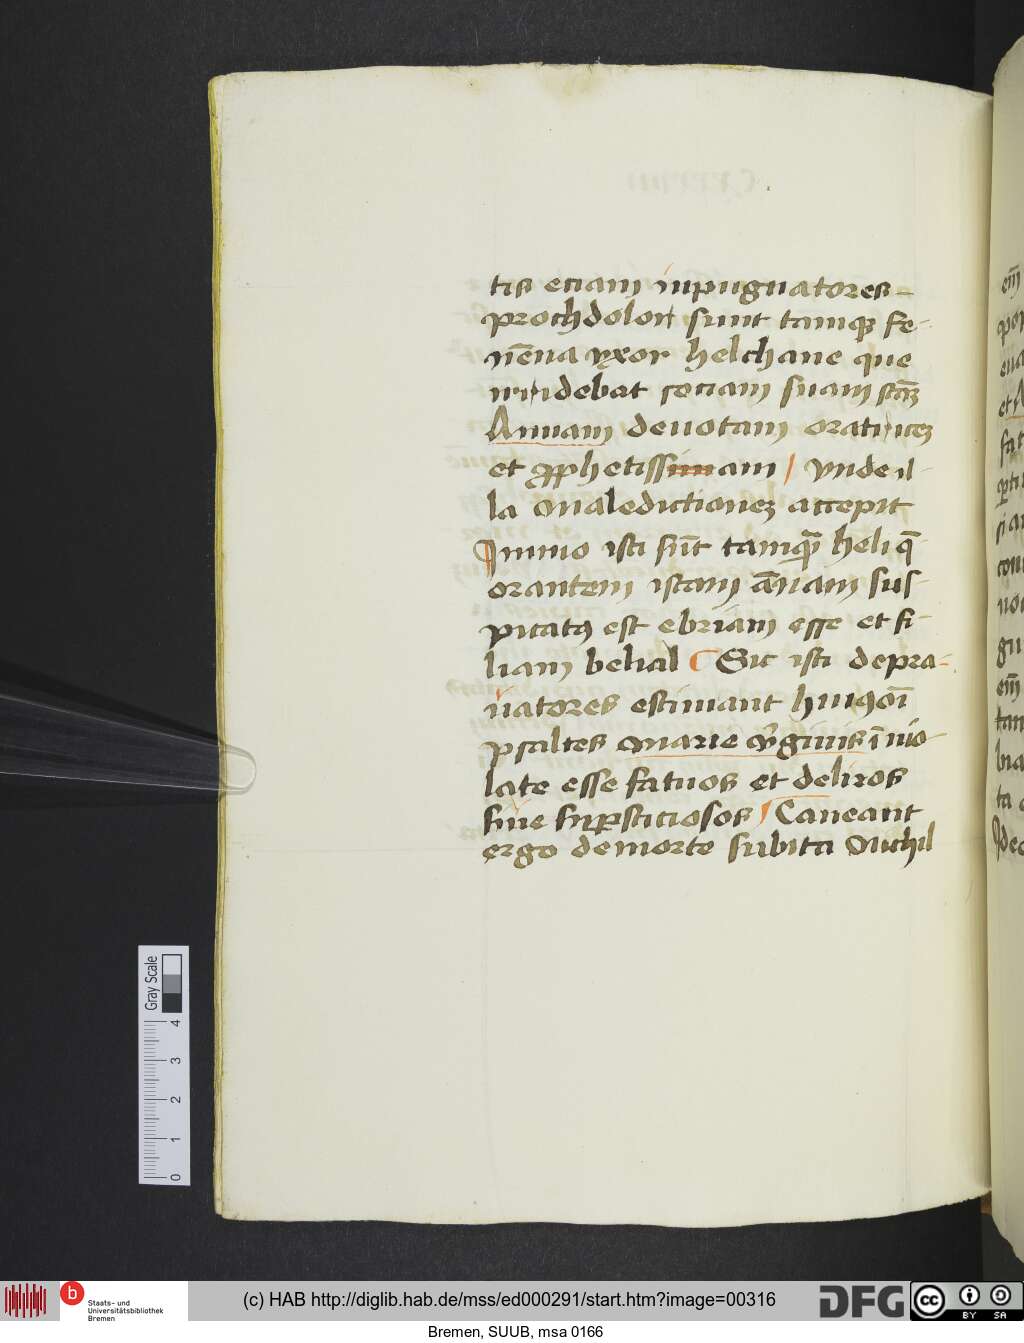 tis eciam inpugnatores
prochdolor sunt tamqꝫ fe-
nēna vxor helchane que
irridebat sociam suam scāꝫ
Annam deuotam oratriceꝫ
et ꝓphetissimam / vnde il-
la maledictioneꝫ accepit
Immo isti sūt tamqꝫ heli q̄
orantem istam ānam sus-
picatꝰ est ebriam esse et fi-
liam belial Sic isti depra-
uatores estimant huiꝰmōi
psaltes marie v̓ginis īuio
late esse fatuos et deliros
siue suꝑsticiosos / Caueant
ergo de morte subita Michil
em̄
et A
fat
si a
gu
em̄
tan
ta
Gray Scale
4
3
2
1
0
b
Staats- und
Universitätsbibliothek
Bremen
(c) HAB http://diglib.hab.de/mss/ed000291/start.htm?image=00316
DFG
cc
BY SA
Bremen, SUUB, msa 0166